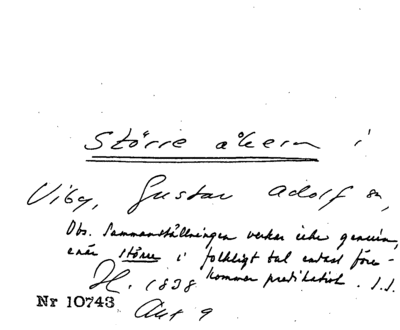 Större åkern i
Viby, Gustav Adolf sn,
Obs. Sammanställningen verkar icke genuin,
enär större i folkligt tal endast före-
kommer predikativt. I.I.
H. 1838
Nr 10743
Akt 9